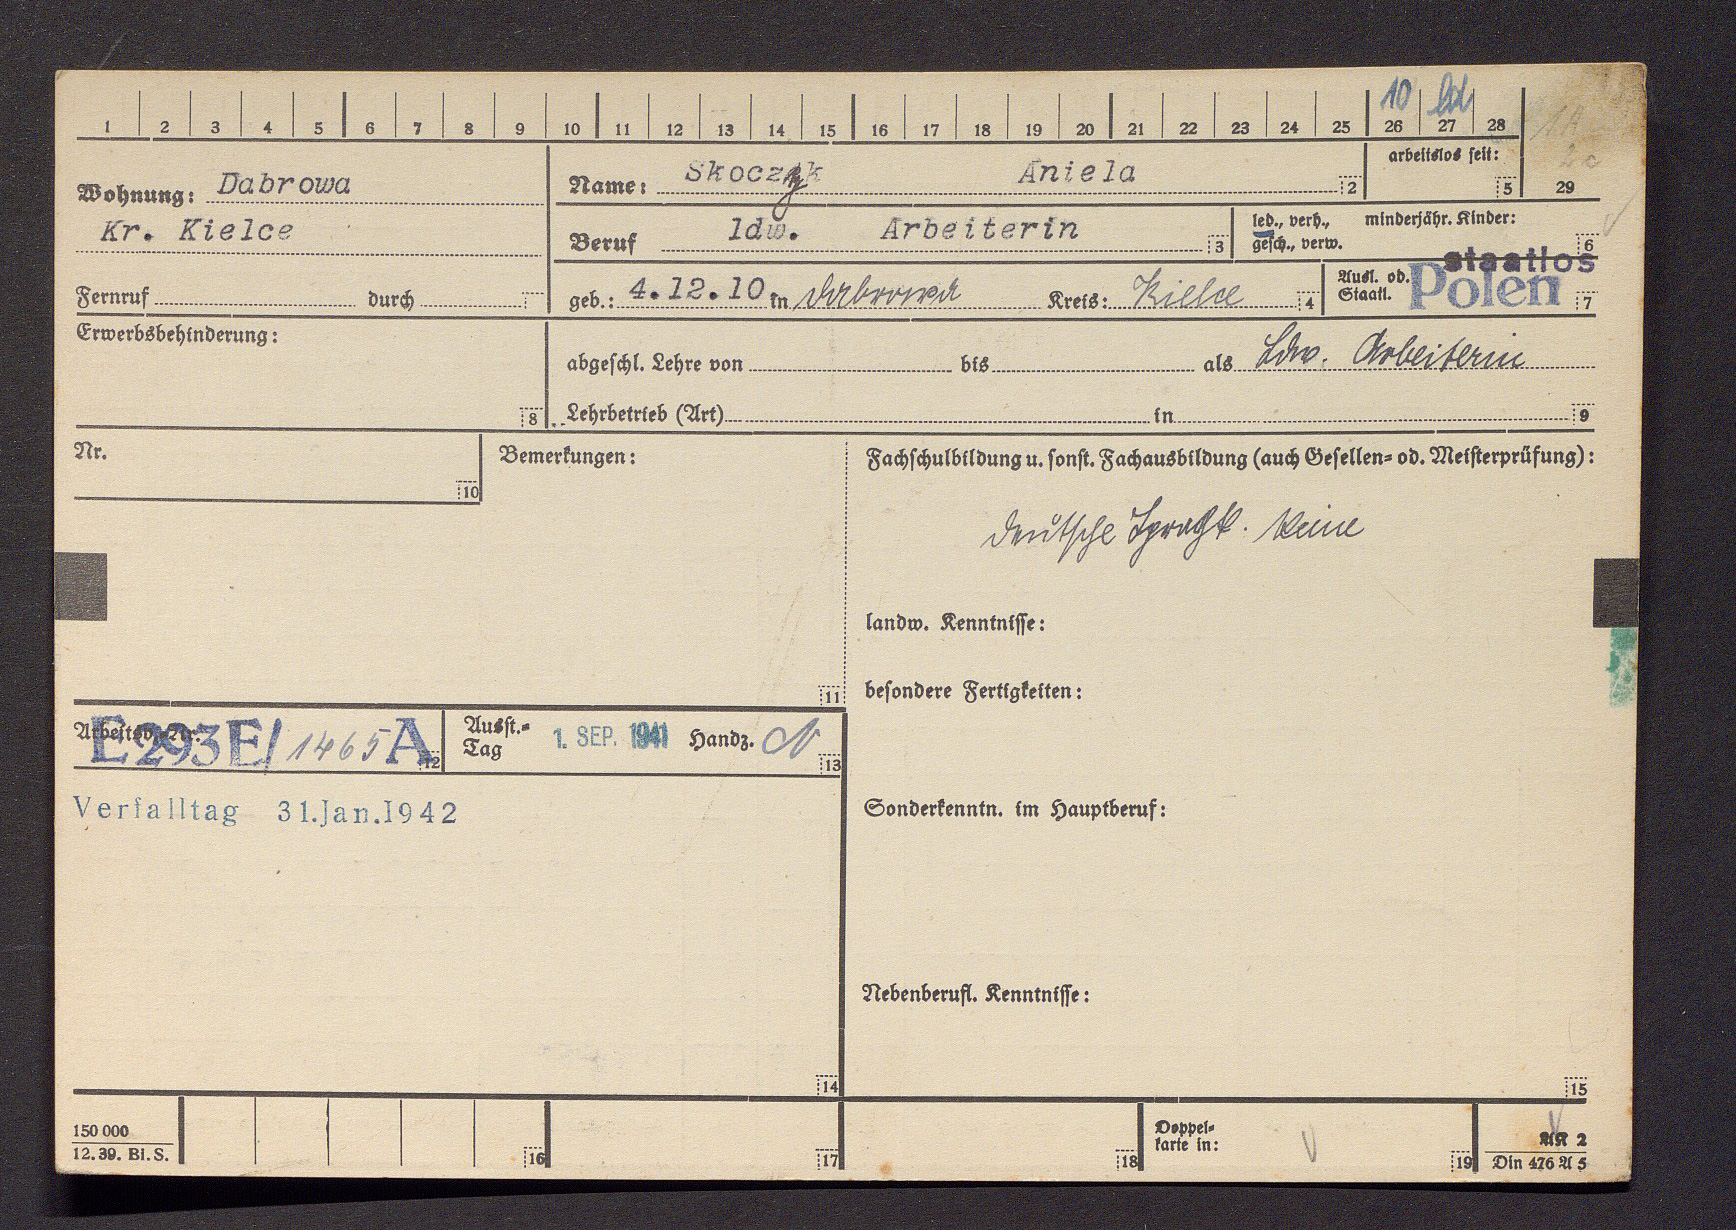 10
1 2 3 4 5 6 7 8 9 10 11 12 13 14 15 16 17 18 19 20 21 22 23 24 25 26 27 28
arbeitslos seit:
5 29
Wohnung: Dabrowa
Kr. Kielce
Name: Skoczyk Aniela 2
Beruf ldw. Arbeiterin 3
led., verh., minderjähr. Kinder:
gesch., verw. 6
Fernruf durch
geb.: 4.12.10 in Dabrowa Kreis: Kielce 4
Ausl. od. staatlos
Staatl. Polen 7
Erwerbsbehinderung:
8
abgeschl. Lehre von bis als Ldw. Arbeiterin
Lehrbetrieb (Art) in 9
Nr.
10
Bemerkungen:
11
Fachschulbildung u. sonst. Fachausbildung (auch Gesellen- od. Meisterprüfung):
deutsche Sprachk. keine
landw. Kenntnisse:
besondere Fertigkeiten:
Arbeitsb.-Nr. E293E/1465A 12
Ausst.-
Tag 1. SEP. 1941 Handz. 13
Verfalltag 31.Jan.1942
Sonderkenntn. im Hauptberuf:
Nebenberufl. Kenntnisse:
14
15
150 000
12. 39. Bl. S.
16
17
18
Doppel-
karte in:
19
AK 2
Din 476 A 5